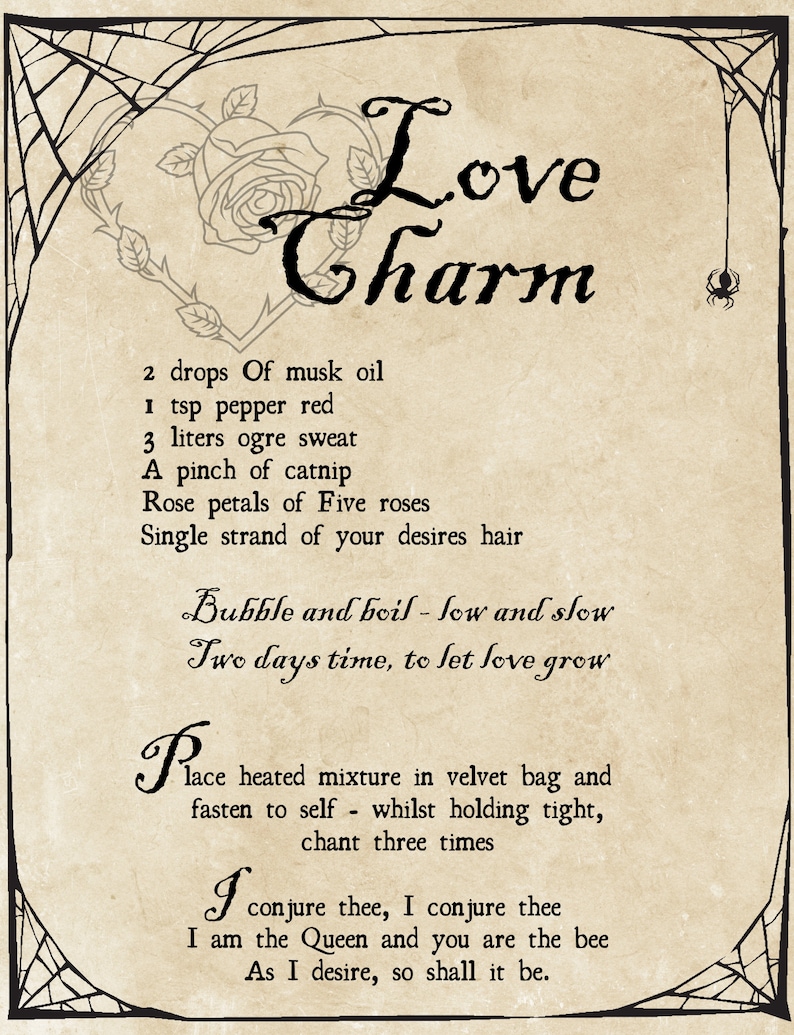 Love
Charm
2 drops Of musk oil
1 tsp pepper red
3 liters ogre sweat
A pinch of catnip
Rose petals of Five roses
Single strand of your desires hair
Bubble and boil - low and slow
Two days time, to let love grow
Place heated mixture in velvet bag and
fasten to self - whilst holding tight,
chant three times
I conjure thee, I conjure thee
I am the Queen and you are the bee
As I desire, so shall it be.